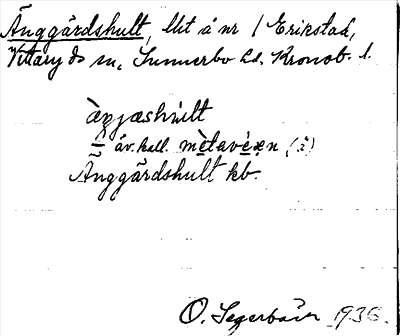 Änggärdshult, lht å nr 1 Erikstad,
Vittaryds sn, Sunnerbo hd. Kronob. l.
àŋjæshùlt
äv. kall.
Änggärdshult kb.
O. Segerbäck 1936.